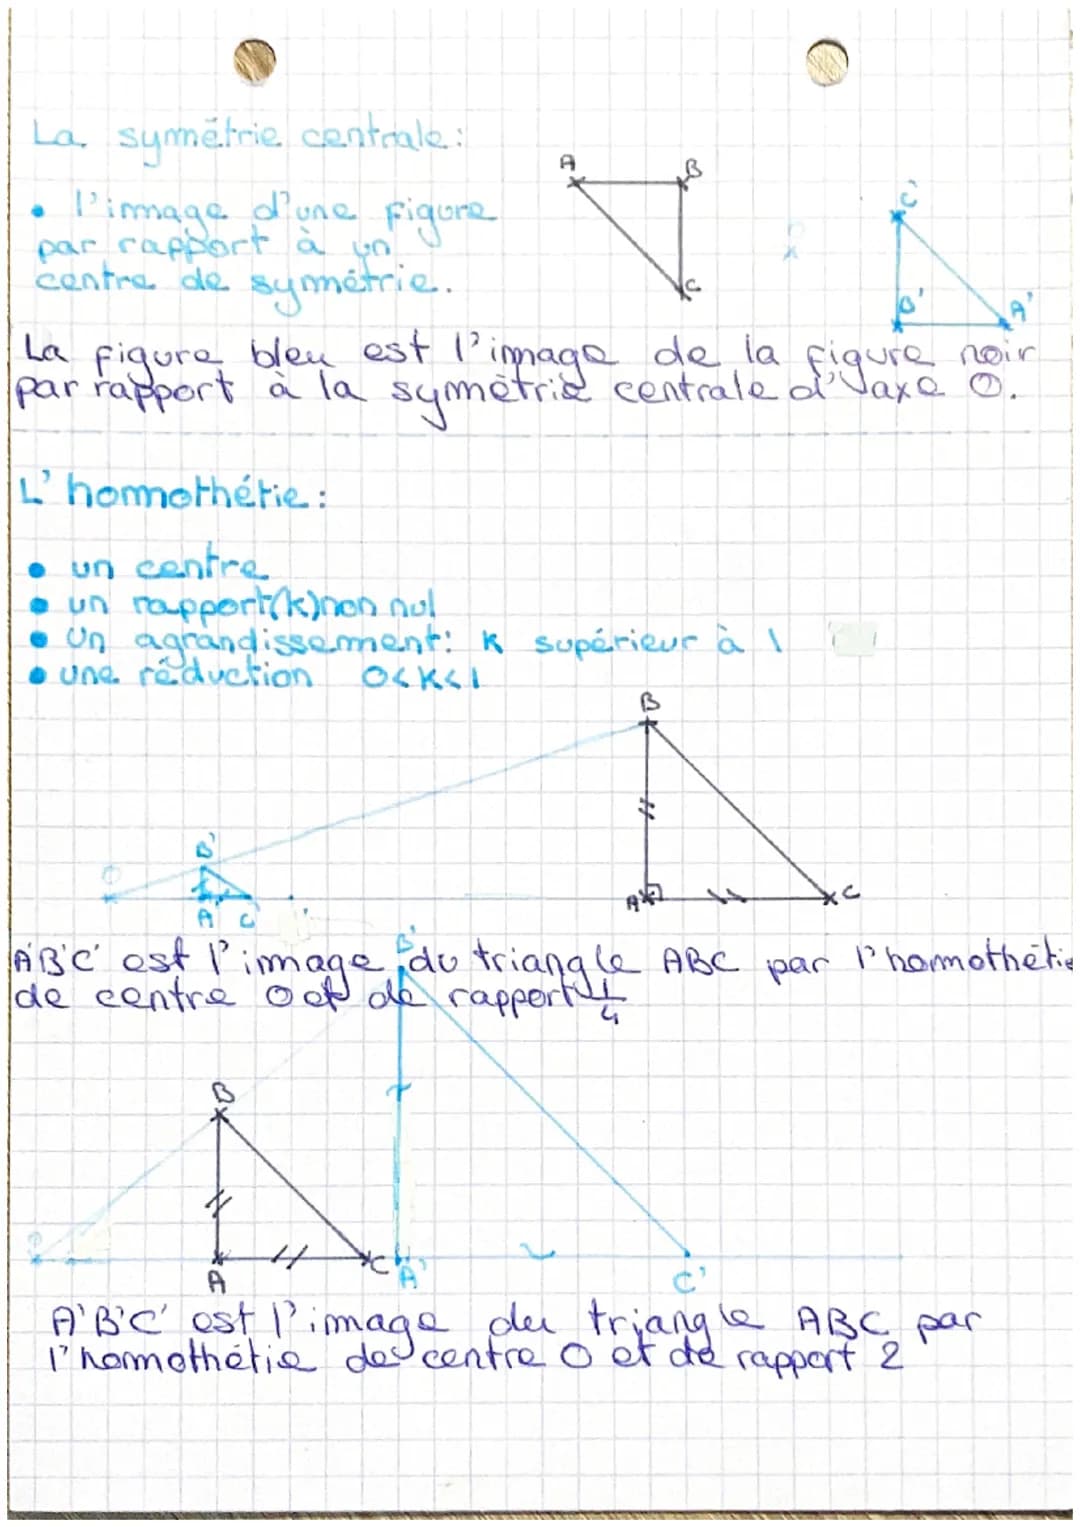 La symétrie centrale:
A
B
• l'image d'une figure
par rapport à un
centre de symétrie.
C
C'
B'
A'
La figure bleu est l'image de la figure noir
par rapport à la symétrie centrale d'axe O.
L'homothétie:
• un centre
• un rapport(k)non nul
• Un agrandissement: K supérieur à 1
• une réduction 0<K<1
B
B'
O
A'
C'
A
C
A'B'C' est l'image du triangle ABC par l'homothétie
de centre O et de rapport 1/4
B'
B
O
A
C
A'
C'
A'B'C' est l'image du triangle ABC par
l'homothétie de centre O et de rapport 2